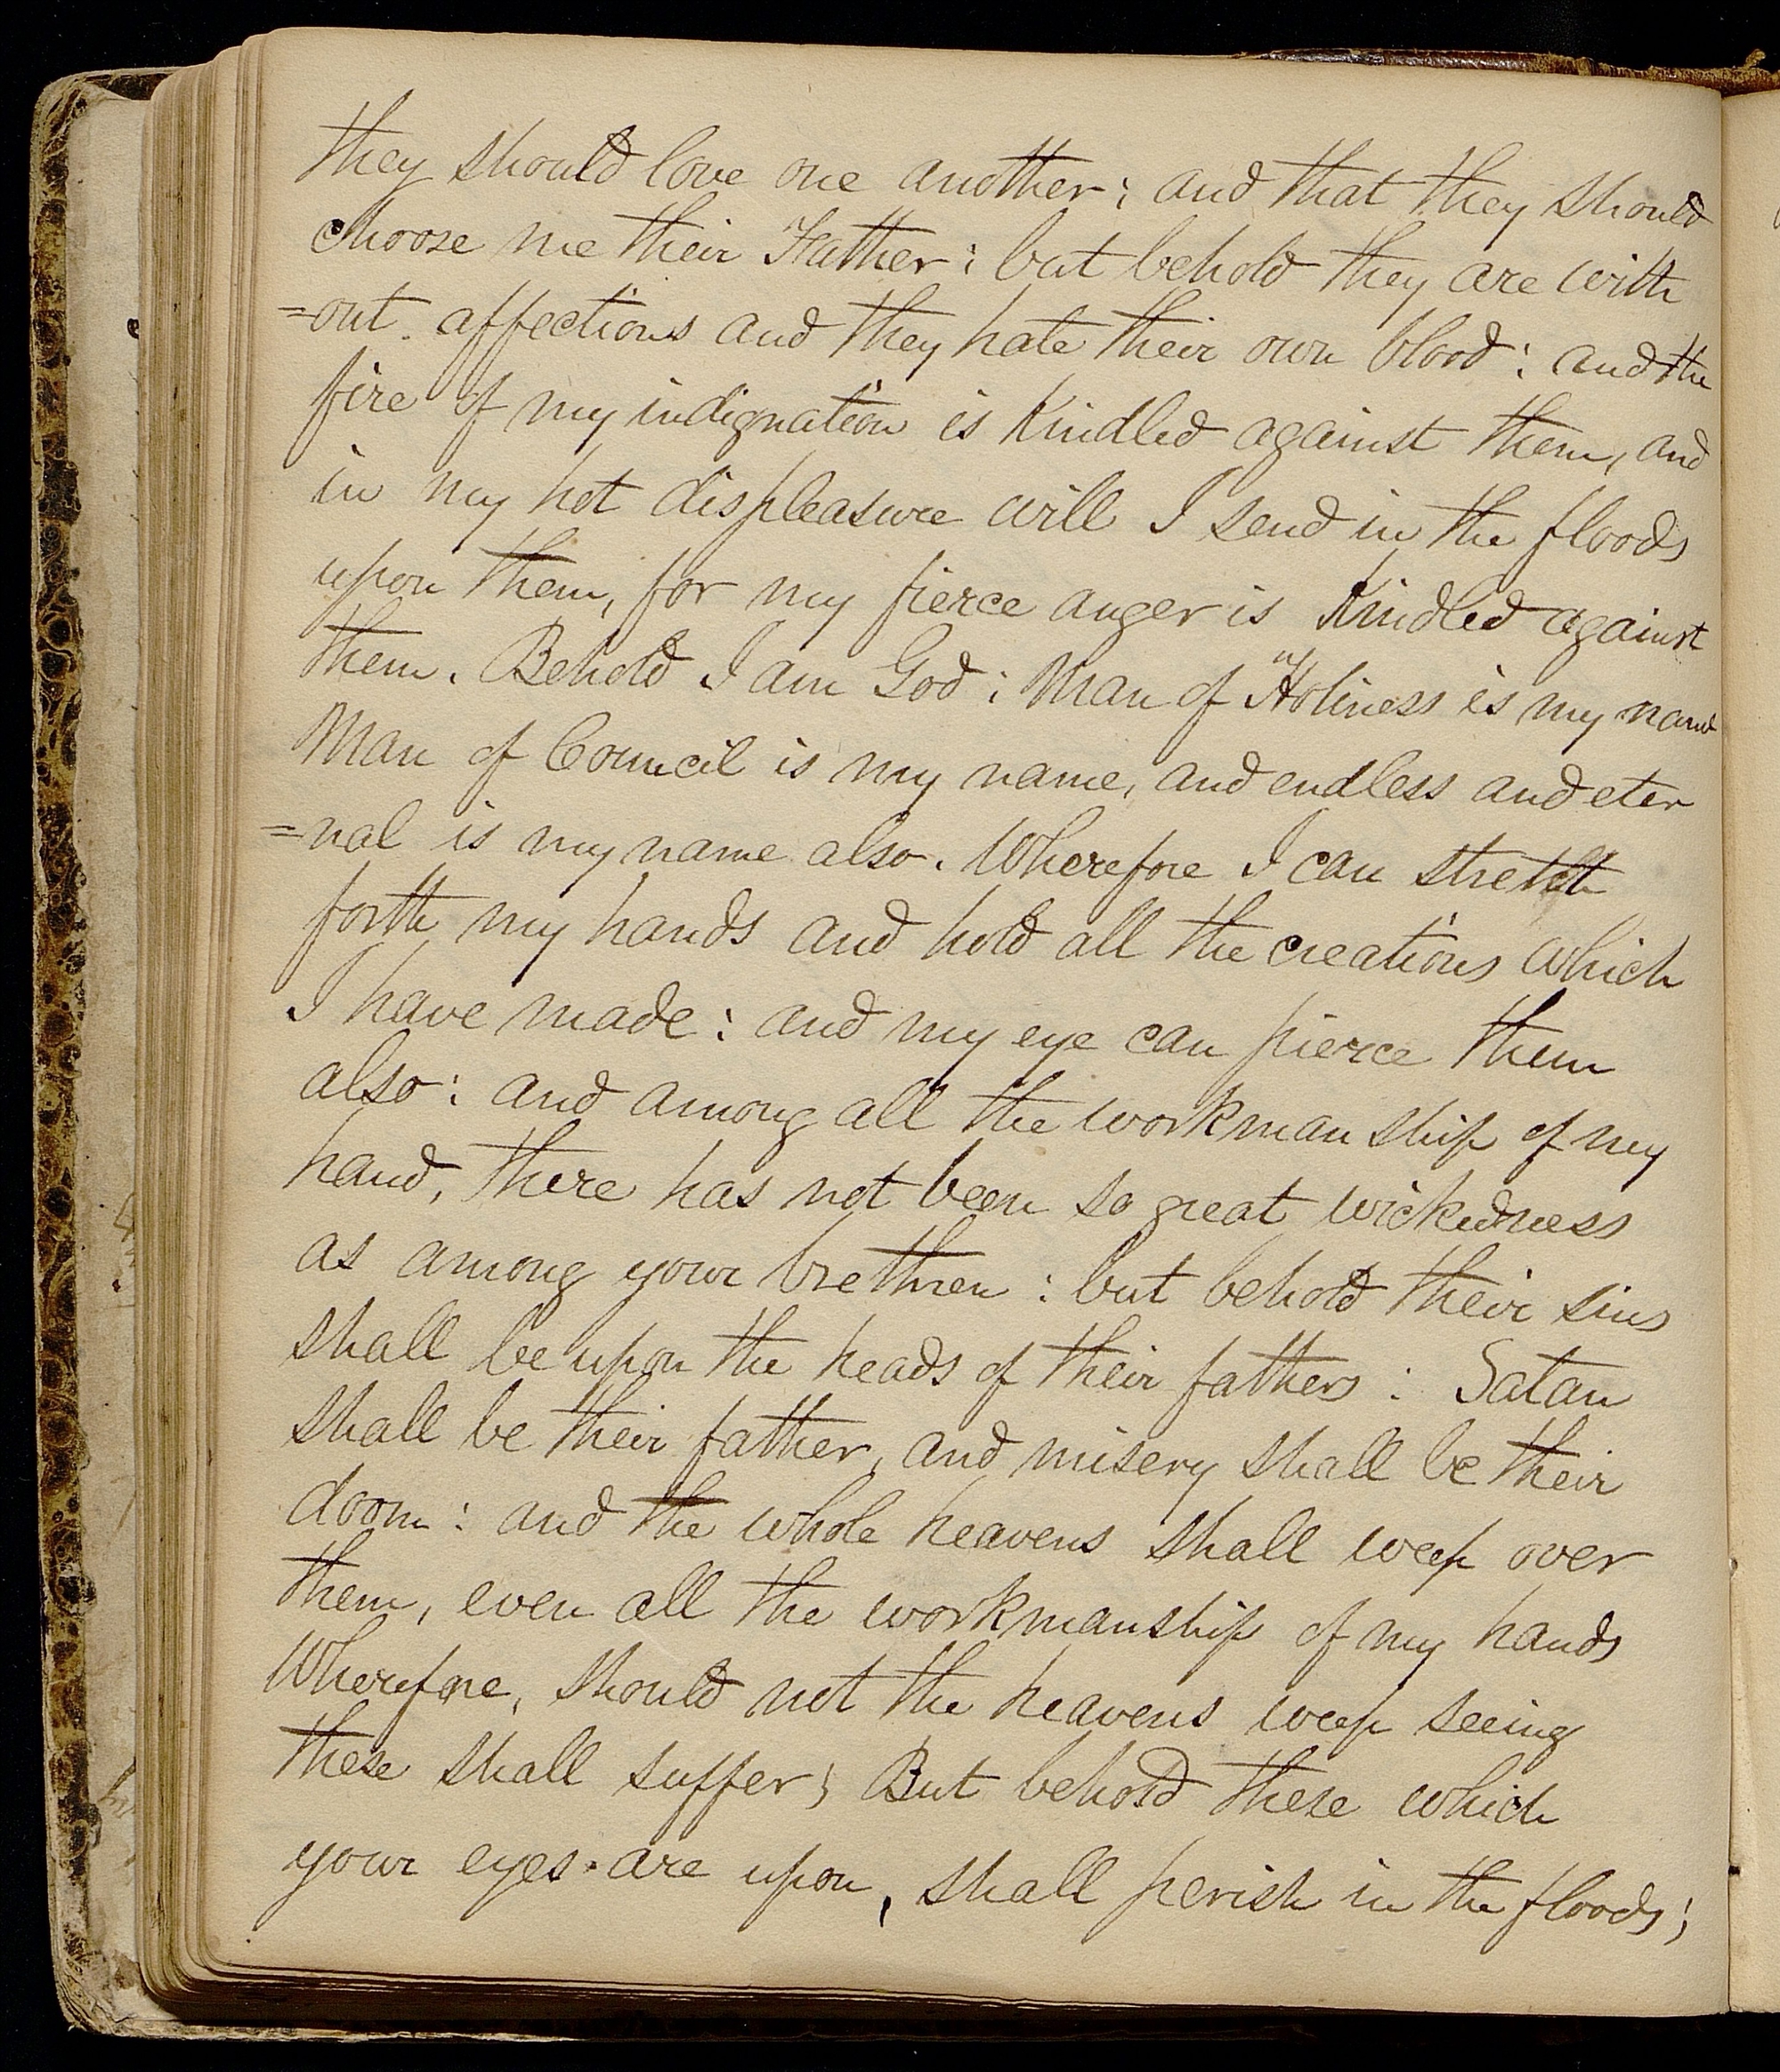 they should love one another; and that they should
choose me their Father: but behold they are with
=out affections and they hate their own blood: and the
fire of my indignation is Kindled against them, and
in my hot displeasure will I send in the floods
upon them, for my fierce anger is Kindled against
them. Behold I am God; Man of Holiness is my name
Man of Council is my name, and endless and eter
=nal is my name also. Wherefore I can stretch
forth my hands and hold all the creations which
I have made: and my eye can pierce them
also: and among all the workman ship of my
hand, there has not been so great wickedness
as among your brethren: but behold their sins
shall be upon the heads of their fathers: Satan
shall be their father, and misery shall be their
doom: and the whole heavens shall weep over
them, even all the workmanship of my hands
Wherefore, should not the heavens weep seeing
these shall suffer; But behold these which
your eyes are upon, shall perish in the floods;